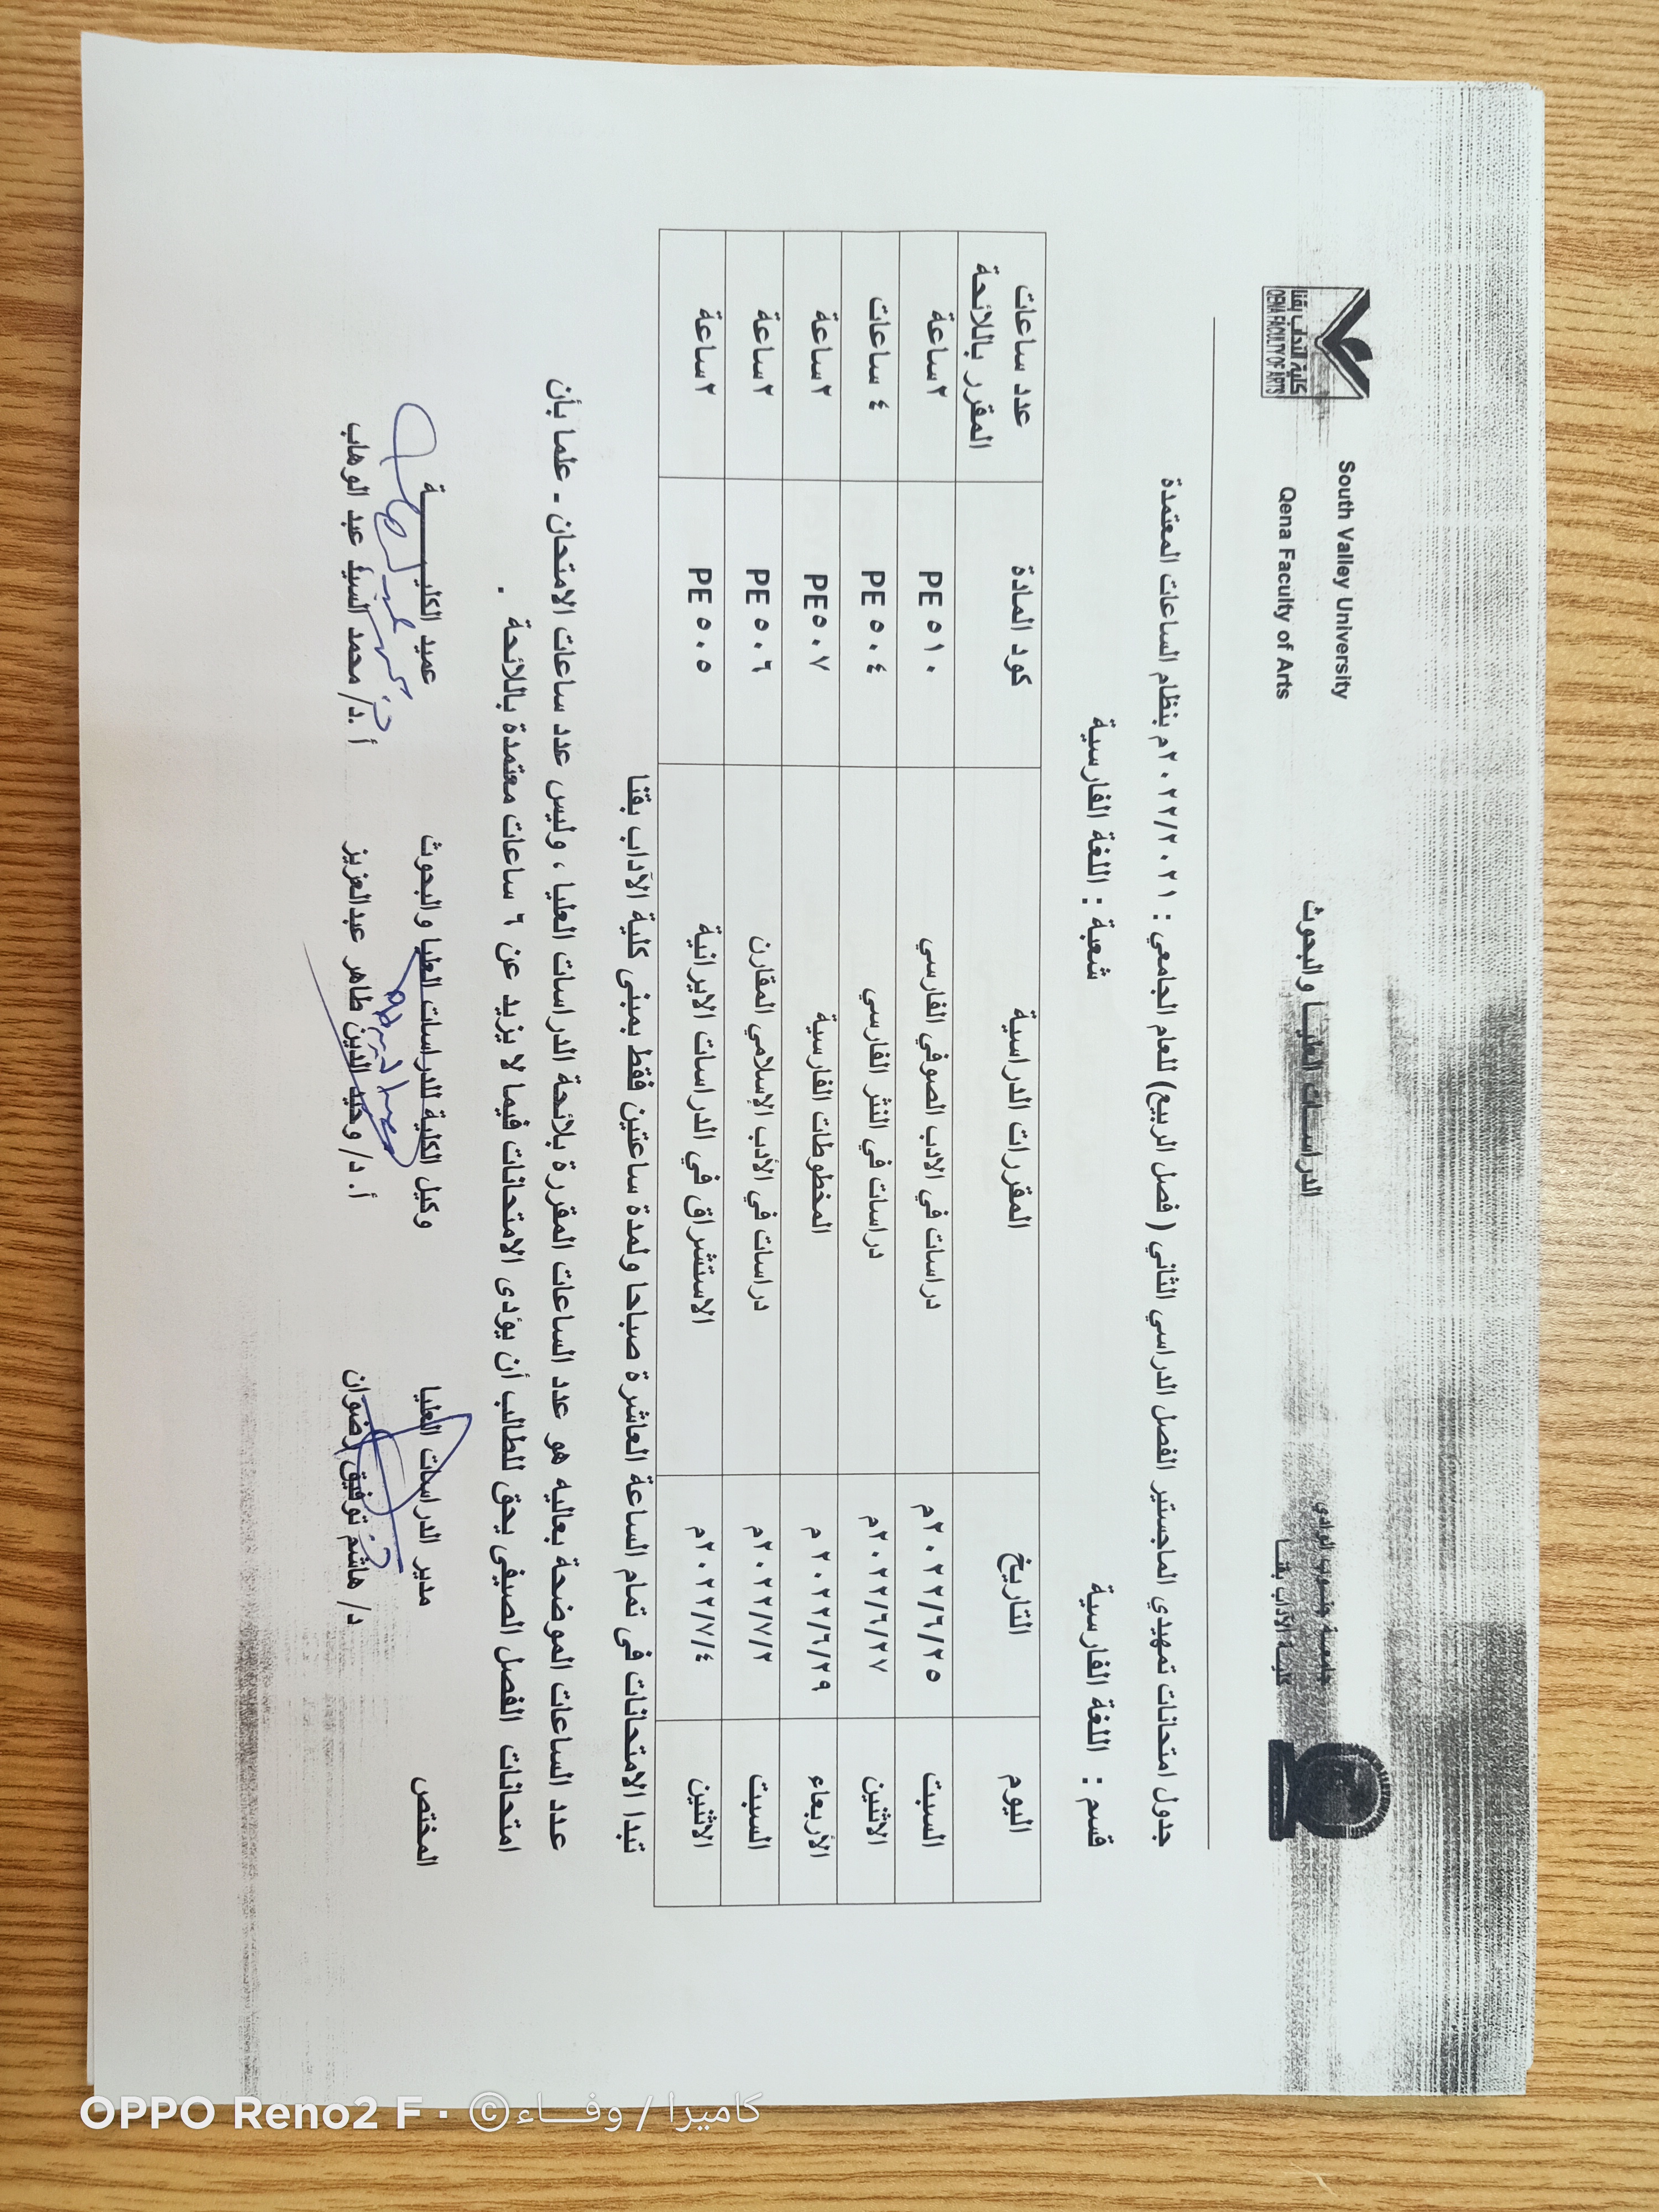 جامعة جنوب الوادي
كلية الآداب بقنا
الدراسات العليا والبحوث
South Valley University
Qena Faculty of Arts
كلية الآداب بقنا
QENA FACULTY OF ARTS
جدول امتحانات تمهيدي الماجستير الفصل الدراسي الثاني ( فصل الربيع) للعام الجامعي : ٢٠٢٢/٢٠٢١م بنظام الساعات المعتمدة
قسم : اللغة الفارسية شعبة : اللغة الفارسية
اليوم التاريخ المقررات الدراسية كود المادة عدد ساعات المقرر باللائحة
السبت ٢٠٢٢/٦/٢٥م دراسات في الادب الصوفي الفارسي PE ٥١٠ ٢ساعة
الاثنين ٢٠٢٢/٦/٢٧م دراسات في النثر الفارسي PE ٥٠٤ ٤ ساعات
الأربعاء ٢٠٢٢/٦/٢٩م المخطوطات الفارسية PE٥٠٧ ٢ساعة
السبت ٢٠٢٢/٧/٢م دراسات في الأدب الإسلامي المقارن PE ٥٠٦ ٢ساعة
الاثنين ٢٠٢٢/٧/٤م الاستشراق في الدراسات الايرانية PE ٥٠٥ ٢ساعة
تبدا الامتحانات فى تمام الساعة العاشرة صباحا ولمدة ساعتين فقط بمبنى كلية الآداب بقنا
عدد الساعات الموضحة بعاليه هو عدد الساعات المقررة بلائحة الدراسات العليا ، وليس عدد ساعات الامتحان - علما بأن
امتحانات الفصل الصيفى يحق للطالب أن يؤدى الامتحانات فيما لا يزيد عن ٦ ساعات معتمدة باللائحة .
المختص مدير الدراسات العليا وكيل الكلية للدراسات العليا والبحوث عميد الكليـــــة
د/ هاشم توفيق رضوان أ. د/ وحيد الدين طاهر عبدالعزيز أ .د/ محمد السيد عبد الوهاب
OPPO Reno2 F · ©كاميرا / وفـــاء